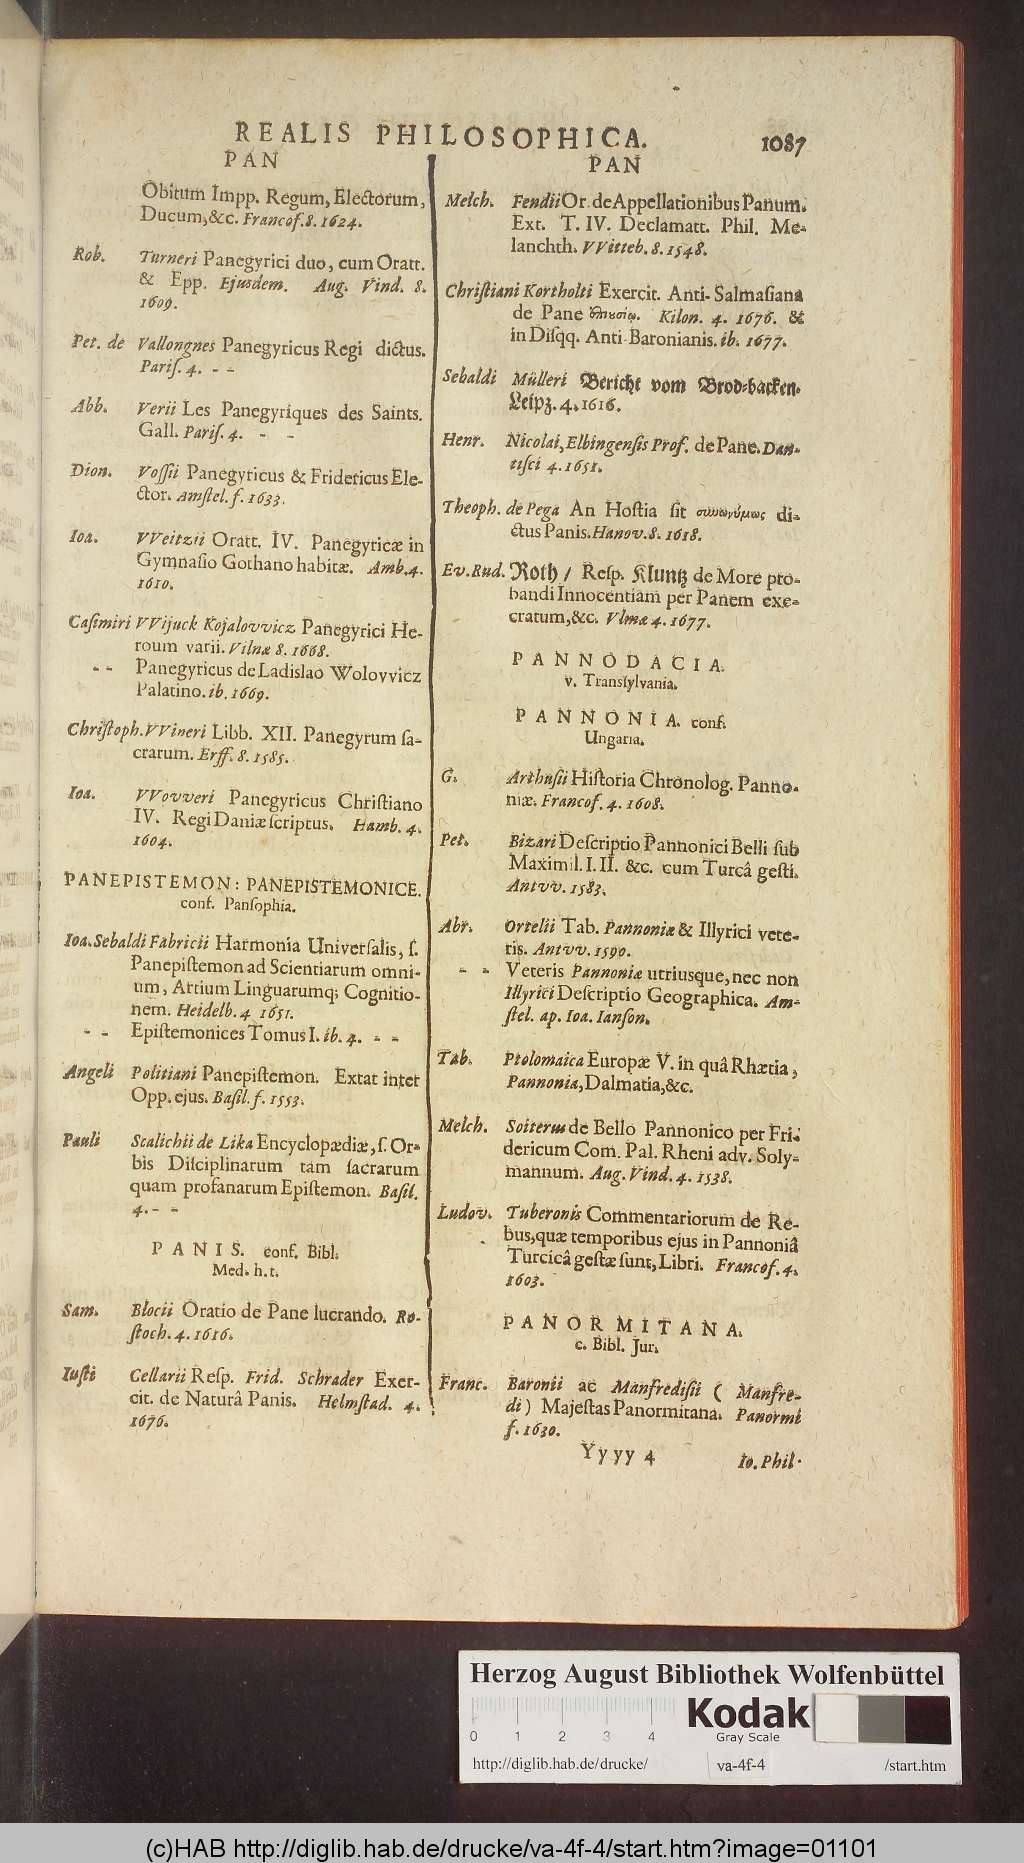 REALIS PHILOSOPHICA. 1087
PAN
Obitum Impp. Regum, Electorum,
Ducum, &c. Francof. 8. 1624.
Rob. Turneri Panegyrici duo, cum Oratt.
& Epp. Ejusdem. Aug. Vind. 8.
1609.
Pet. de Vallongnes Panegyricus Regi dictus.
Pariſ. 4. - -
Abb. Verii Les Panegyriques des Saints.
Gall. Pariſ. 4. - -
Dion. Voſſii Panegyricus & Fridericus Ele-
ctor. Amſtel. f. 1633.
Ioa. VVeitzii Oratt. IV. Panegyricæ in
Gymnaſio Gothano habitæ. Amb. 4.
1610.
Caſimiri VVijuck Kojalovvicz Panegyrici He-
roum varii. Vilnæ 8. 1668.
- - Panegyricus de Ladislao Wolovvicz
Palatino. ib. 1669.
Chriſtoph. VVineri Libb. XII. Panegyrum ſa-
crarum. Erff. 8. 1585.
Ioa. VVovveri Panegyricus Chriſtiano
IV. Regi Daniæ ſcriptus. Hamb. 4.
1604.
PANEPISTEMON: PANEPISTEMONICE.
conf. Panſophia.
Ioa. Sebaldi Fabricii Harmonia Univerſalis, ſ.
Panepiſtemon ad Scientiarum omni-
um, Artium Linguarumq; Cognitio-
nem. Heidelb. 4 1651.
- - Epiſtemonices Tomus I. ib. 4. - -
Angeli Politiani Panepiſtemon. Extat inter
Opp. ejus. Baſil. f. 1553.
Pauli Scalichii de Lika Encyclopædiæ, ſ. Or-
bis Diſciplinarum tam ſacrarum
quam profanarum Epiſtemon. Baſil.
4. - -
PANIS. conf. Bibl.
Med. h.t.
Sam. Blocii Oratio de Pane lucrando. Ro-
ſtoch. 4. 1616.
Iuſti Cellarii Reſp. Frid. Schrader Exer-
cit. de Naturâ Panis. Helmſtad. 4.
1676.
PAN
Melch. Fendii Or. de Appellationibus Panum.
Ext. T. IV. Declamatt. Phil. Me-
lanchth. VVitteb. 8. 1548.
Chriſtiani Kortholti Exercit. Anti-Salmaſiana
de Pane ἐπιουσίῳ. Kilon. 4. 1676. &
in Diſqq. Anti-Baronianis. ib. 1677.
Sebaldi Mülleri Bericht vom Brod-backen.
Leipz. 4. 1616.
Henr. Nicolai, Elbingenſis Prof. de Pane. Dan-
tiſci 4. 1651.
Theoph. de Pega An Hoſtia ſit συνωνύμως di-
ctus Panis. Hanov. 8. 1618.
Ev. Rud. Roth / Reſp. Kluntz de More pro-
bandi Innocentiam per Panem exe-
cratum, &c. Vlmæ 4. 1677.
PANNODACIA.
v. Transſylvania.
PANNONIA. conf.
Ungaria.
G. Arthuſii Hiſtoria Chronolog. Panno-
niæ. Francof. 4. 1608.
Pet. Bizari Deſcriptio Pannonici Belli ſub
Maximil. I. II. &c. cum Turcâ geſti.
Antvv. 1583.
Abr. Ortelii Tab. Pannoniæ & Illyrici vete-
ris. Antvv. 1590.
- - Veteris Pannoniæ utriusque, nec non
Illyrici Deſcriptio Geographica. Am-
ſtel. ap. Ioa. Ianſon.
Tab. Ptolomaica Europæ V. in quâ Rhætia,
Pannonia, Dalmatia, &c.
Melch. Soiterus de Bello Pannonico per Fri-
dericum Com. Pal. Rheni adv. Soly-
mannum. Aug. Vind. 4. 1538.
Ludov. Tuberonis Commentariorum de Re-
bus, quæ temporibus ejus in Pannoniâ
Turcicâ geſtæ ſunt, Libri. Francof. 4.
1603.
PANORMITANA.
c. Bibl. Jur.
Franc. Baronii ac Manfrediſii ( Manfre-
di ) Majeſtas Panormitana. Panormi
f. 1630.
Yyyy 4 Io. Phil.
Herzog August Bibliothek Wolfenbüttel
0 1 2 3 4
Kodak
Gray Scale
http://diglib.hab.de/drucke/ va-4f-4 /start.htm
(c)HAB http://diglib.hab.de/drucke/va-4f-4/start.htm?image=01101